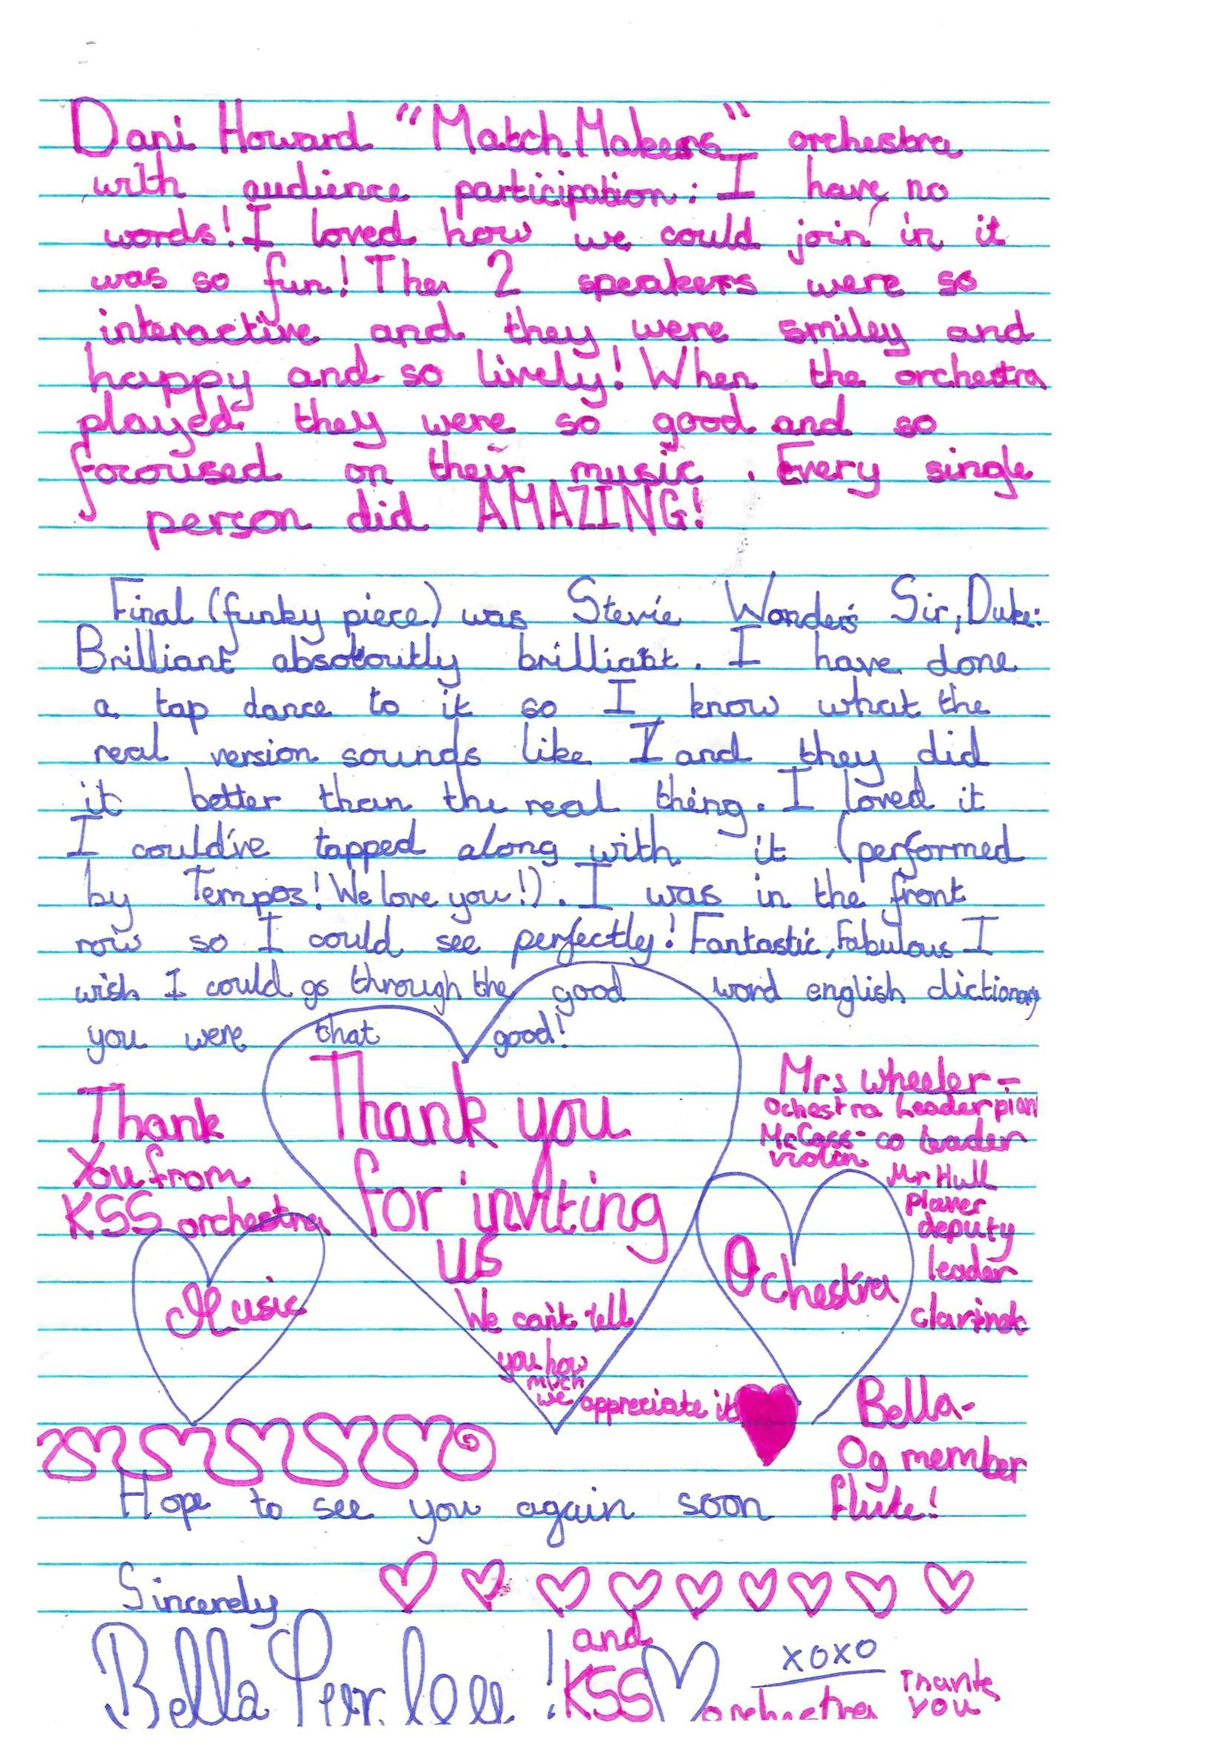 Dani Howard "Match Makers" orchestra
with audience participation: I have no
words! I loved how we could join in it
was so fun! The 2 speakers were so
interactive and they were smiley and
happy and so lively! When the orchestra
played they were so good and so
focoused on their music. Every single
person did AMAZING!
Final (funky piece) was Stevie Wonders Sir, Duke:
Brilliant absoloutly brilliant. I have done
a tap dance to it so I know what the
real version sounds like I and they did
it better than the real thing. I loved it
I could've tapped along with it (performed
by Tempos! We love you!). I was in the front
row so I could see perfectly! Fantastic, Fabulous I
wish I could go through the good word english dictionary
you were that good!
Thank
You from
KSS orchestra
Music
Thank you
for inviting
us
We can't tell
you how
much
we appreciate it
Mrs wheeler -
Ochestra Leader pian
co leader
violin
Mr Hull
player
deputy
leader
clarinet
Ochestra
Bella-
Og member
flute!
Hope to see you again soon
Sincerely
Bella !
and
KSS
orchestra
xoxo
Thanks
you